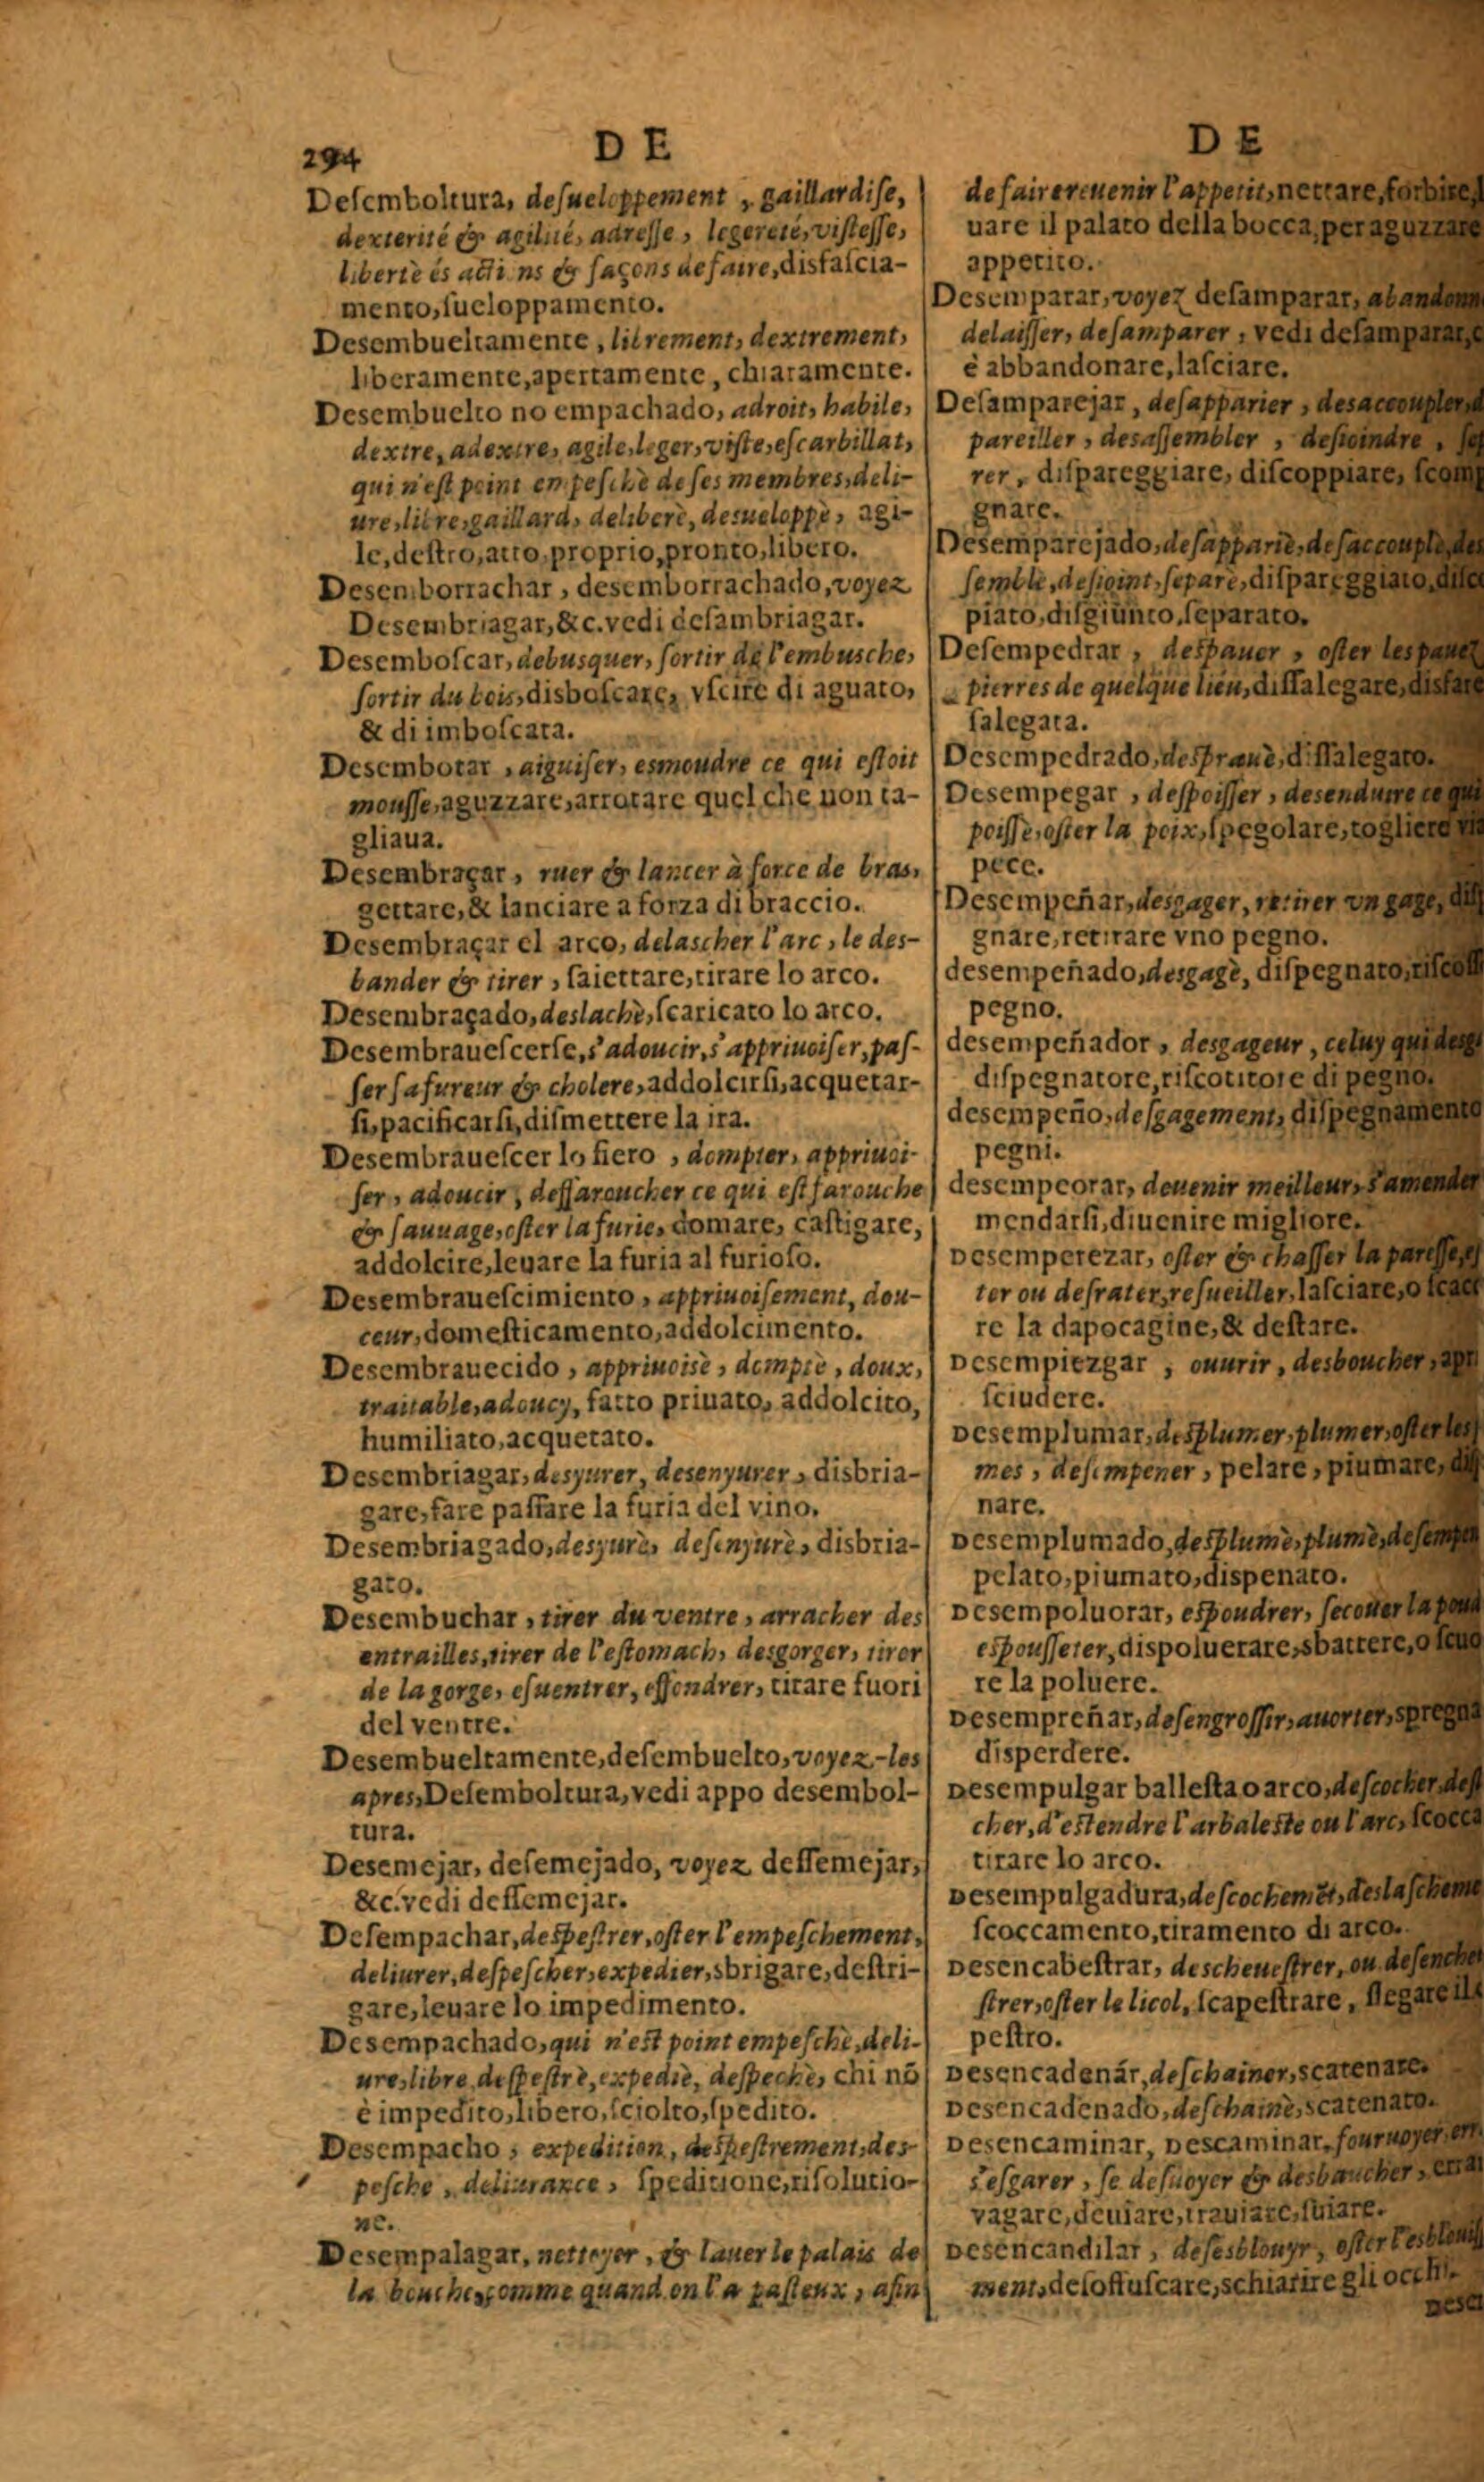 294
DE
Deſemboltura, deſueloppement, gaillardiſe,
dexterité & agilité, adreſſe, legereté, viſteſſe,
libertè és acti ns & façons de faire, disfaſcia-
mento, ſueloppamento.
Desembueltamente, librement, dextrement,
liberamente, apertamente, chiaramente.
Desembuelto no empachado, adroit, habile,
dextre, adextre, agile, leger, viſte, eſcarbillat,
qui n'eſt point empeſchè de ſes membres, deli-
ure, libre, gaillard, deliberè, desueloppè, agi-
le, deſtro, atto, proprio, pronto, libero.
Desemborrachar, desemborrachado, voyez
Desembriagar, &c. vedi deſambriagar.
Desemboſcar, debusquer, ſortir de l'embusche,
ſortir du bois, disboſcare, vſcire di aguato,
& di imboſcata.
Desembotar, aiguiſer, esmoudre ce qui eſtoit
mouſſe, aguzzare, arrotare quel che non ta-
gliaua.
Desembraçar, ruer & lancer à force de bras,
gettare, & lanciare a forza di braccio.
Desembraçar el arco, delascher l'arc, le des-
bander & tirer, ſaiettare, tirare lo arco.
Desembraçado, deslachè, ſcaricato lo arco.
Desembraueſcerſe, s'adoucir, s'appriuoiſer, paſ-
ſer ſa fureur & cholere, addolcirſi, acquetar-
ſi, pacificarſi, diſmettere la ira.
Desembraueſcer lo fiero, dompter, appriuoi-
ſer, adoucir, deffaroucher ce qui eſt farouche
& ſauuage, oſter la furie, domare, caſtigare,
addolcire, leuare la furia al furioſo.
Desembraueſcimiento, appriuoiſement, dou-
ceur, domeſticamento, addolcimento.
Desembrauecido, appriuoisè, domptè, doux,
traitable, adoucy, fatto priuato, addolcito,
humiliato, acquetato.
Desembriagar, desyurer, desenyurer, disbria-
gare, fare paſſare la furia del vino.
Desembriagado, desyurè, deſenyurè, disbria-
gato.
Desembuchar, tirer du ventre, arracher des
entrailles, tirer de l'eſtomach, desgorger, tirer
de la gorge, eſuentrer, effondrer, tirare fuori
del ventre.
Desembueltamente, deſembuelto, voyez-les
apres, Deſemboltura, vedi appo desembol-
tura.
Desemejar, deſemejado, voyez deſſemejar,
&c. vedi deſſemejar.
Deſempachar, despeſtrer, oſter l'empeſchement,
deliurer, deſpeſcher, expedier, sbrigare, deſtri-
gare, leuare lo impedimento.
Desempachado, qui n'eſt point empeſchè, deli-
ure, libre, deſpeſtrè, expediè, deſpechè, chi nõ
è impedito, libero, ſciolto, ſpedito.
Desempacho, expedition, despeſtrement, des-
peſche, deliurance, ſpeditione, riſolutio-
ne.
Desempalagar, nettoyer, & lauer le palais de
la bouche, comme quand on l'a paſteux, afin
DE
de faire reuenir l'appetit, nettare, forbire, l
uare il palato della bocca, per aguzzare
appetito.
Desemparar, voyez deſamparar, abandonn
delaiſſer, deſamparer, vedi deſamparar, c
è abbandonare, laſciare.
Deſamparejar, deſapparier, desaccoupler, d
pareiller, desaſſembler, deſioindre, ſep
rer, diſpareggiare, diſcoppiare, ſcomp
gnare.
Desemparejado, deſappariè, deſaccouplè, des
ſemblè, deſioint, ſeparè, diſpareggiato, diſco
piato, diſgiunto, ſeparato.
Deſempedrar, deſpauer, oſter les pauez
pierres de quelque lieu, diſſalegare, disfare
ſalegata.
Desempedrado, deſprauè, diſſalegato.
Desempegar, deſpoiſſer, desenduire ce qui
poiſſè, oſter la poix, ſpegolare, togliere via
pece.
Desempeñar, desgager, retirer vn gage, diſp
gnare, retirare vno pegno.
desempeñado, desgagè, diſpegnato, riſcoſſ
pegno.
desempeñador, desgageur, celuy qui desg
diſpegnatore, riſcotitore di pegno.
desempeño, deſgagement, diſpegnamento
pegni.
desempeorar, deuenir meilleur, s'amender
mendarſi, diuenire migliore.
Desemperezar, oſter & chaſſer la pareſſe, eſ
ter ou deſrater, reſueiller, laſciare, o ſcacc
re la dapocagine, & deſtare.
Desempiezgar, ouurir, desboucher, apri
ſciudere.
Desemplumar, desplumer, plumer, oſter les p
mes, deſempener, pelare, piumare, diſ
nare.
Desemplumado, desplumè, plumè, deſempen
pelato, piumato, dispenato.
Desempoluorar, eſpoudrer, ſecouer la poud
eſpouſſeter, dispoluerare, sbattere, o ſcuo
re la poluere.
Desempreñar, deſengroſſir, auorter, spregna
disperdere.
Desempulgar balleſta o arco, deſcocher, deſl
cher, d'eſtendre l'arbaleſte ou l'arc, ſcocca
tirare lo arco.
Desempulgadura, deſcochemẽt, deslaſcheme
ſcoccamento, tiramento di arco.
Desencabeſtrar, descheueſtrer, ou deſenche
ſtrer, oſter le licol, ſcapeſtrare, ſlegare il c
peſtro.
Desencadenar, deſchainer, scatenare.
Desencadenado, deſchainè, scatenato.
Desencaminar, Descaminar, fouruoyer, err
s'eſgarer, ſe deſuoyer & desbaucher, errar
vagare, deuiare, trauiare, ſuiare.
Desencandilar, deſesblouyr, oſter l'esblouiſſ
ment, deſoffuſcare, schiarire gli occhi.
Desen